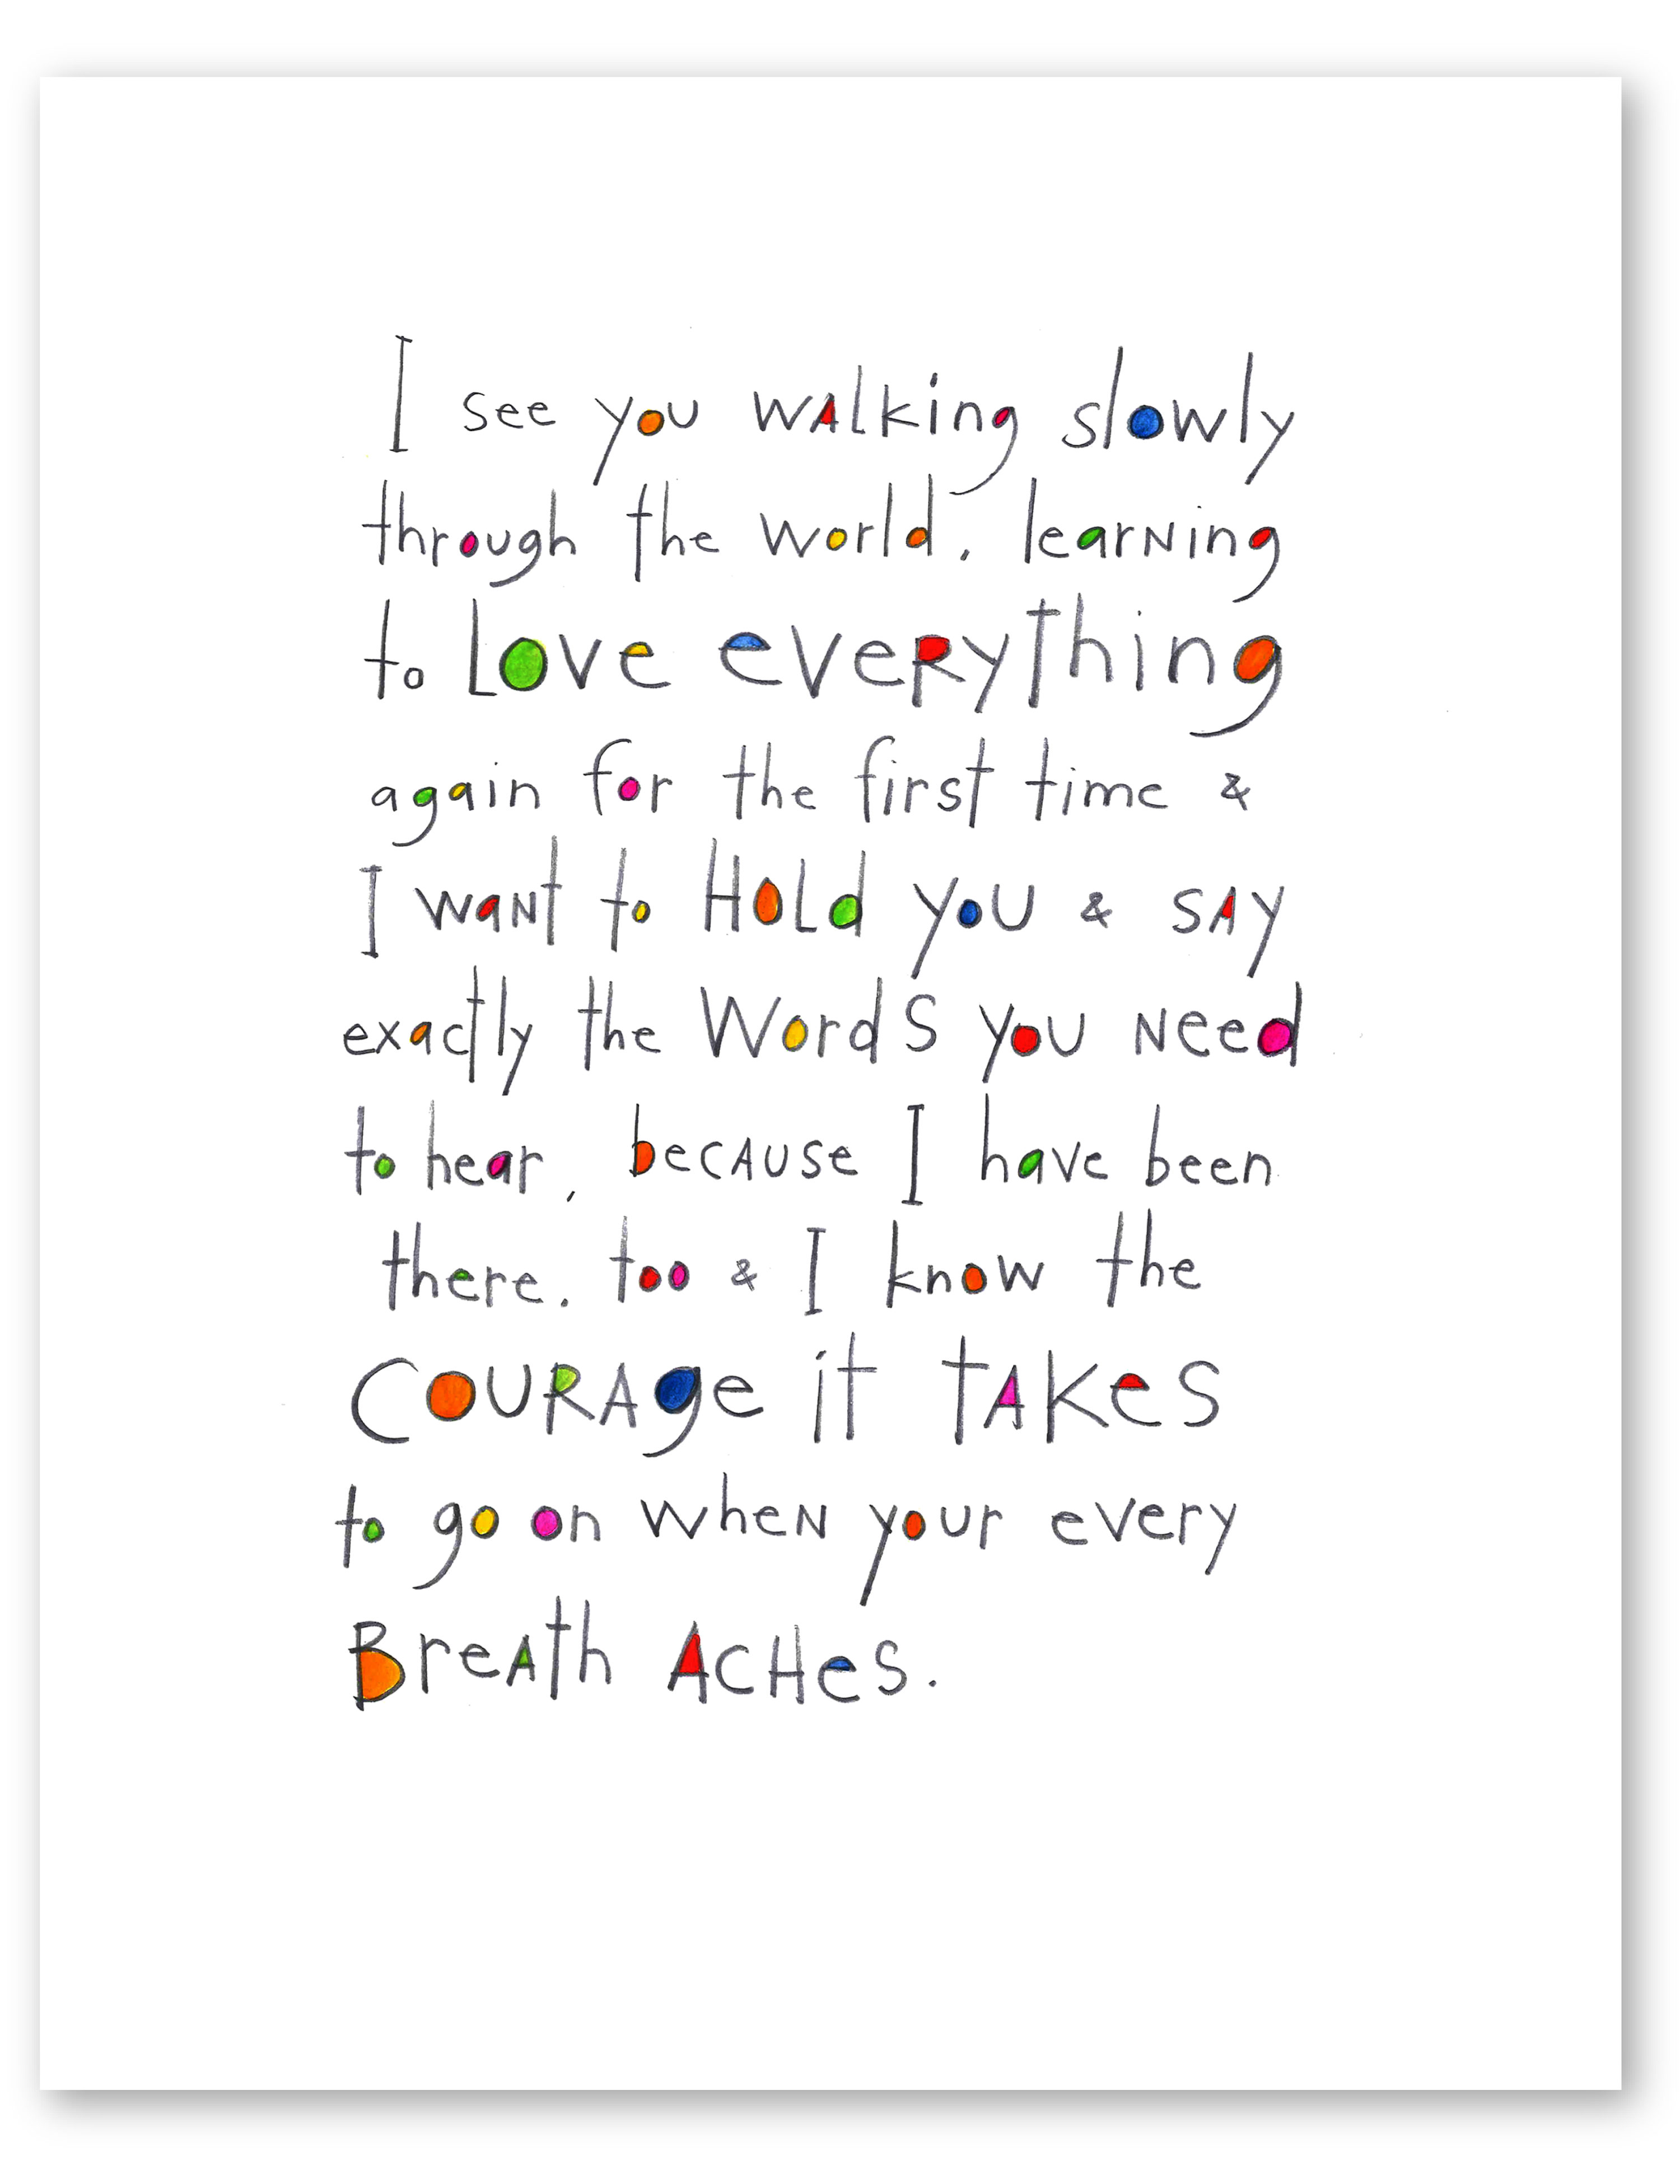 I see you wAlking slowly
through the world, learNing
to Love eveRything
again for the first time &
I waNt to HoLd yoU & SAy
exactly the WordS yoU Need
to hear, becAUse I have been
there, too & I know the
COURAge it tAKes
to go on wheN your every
BreAth ACHes.